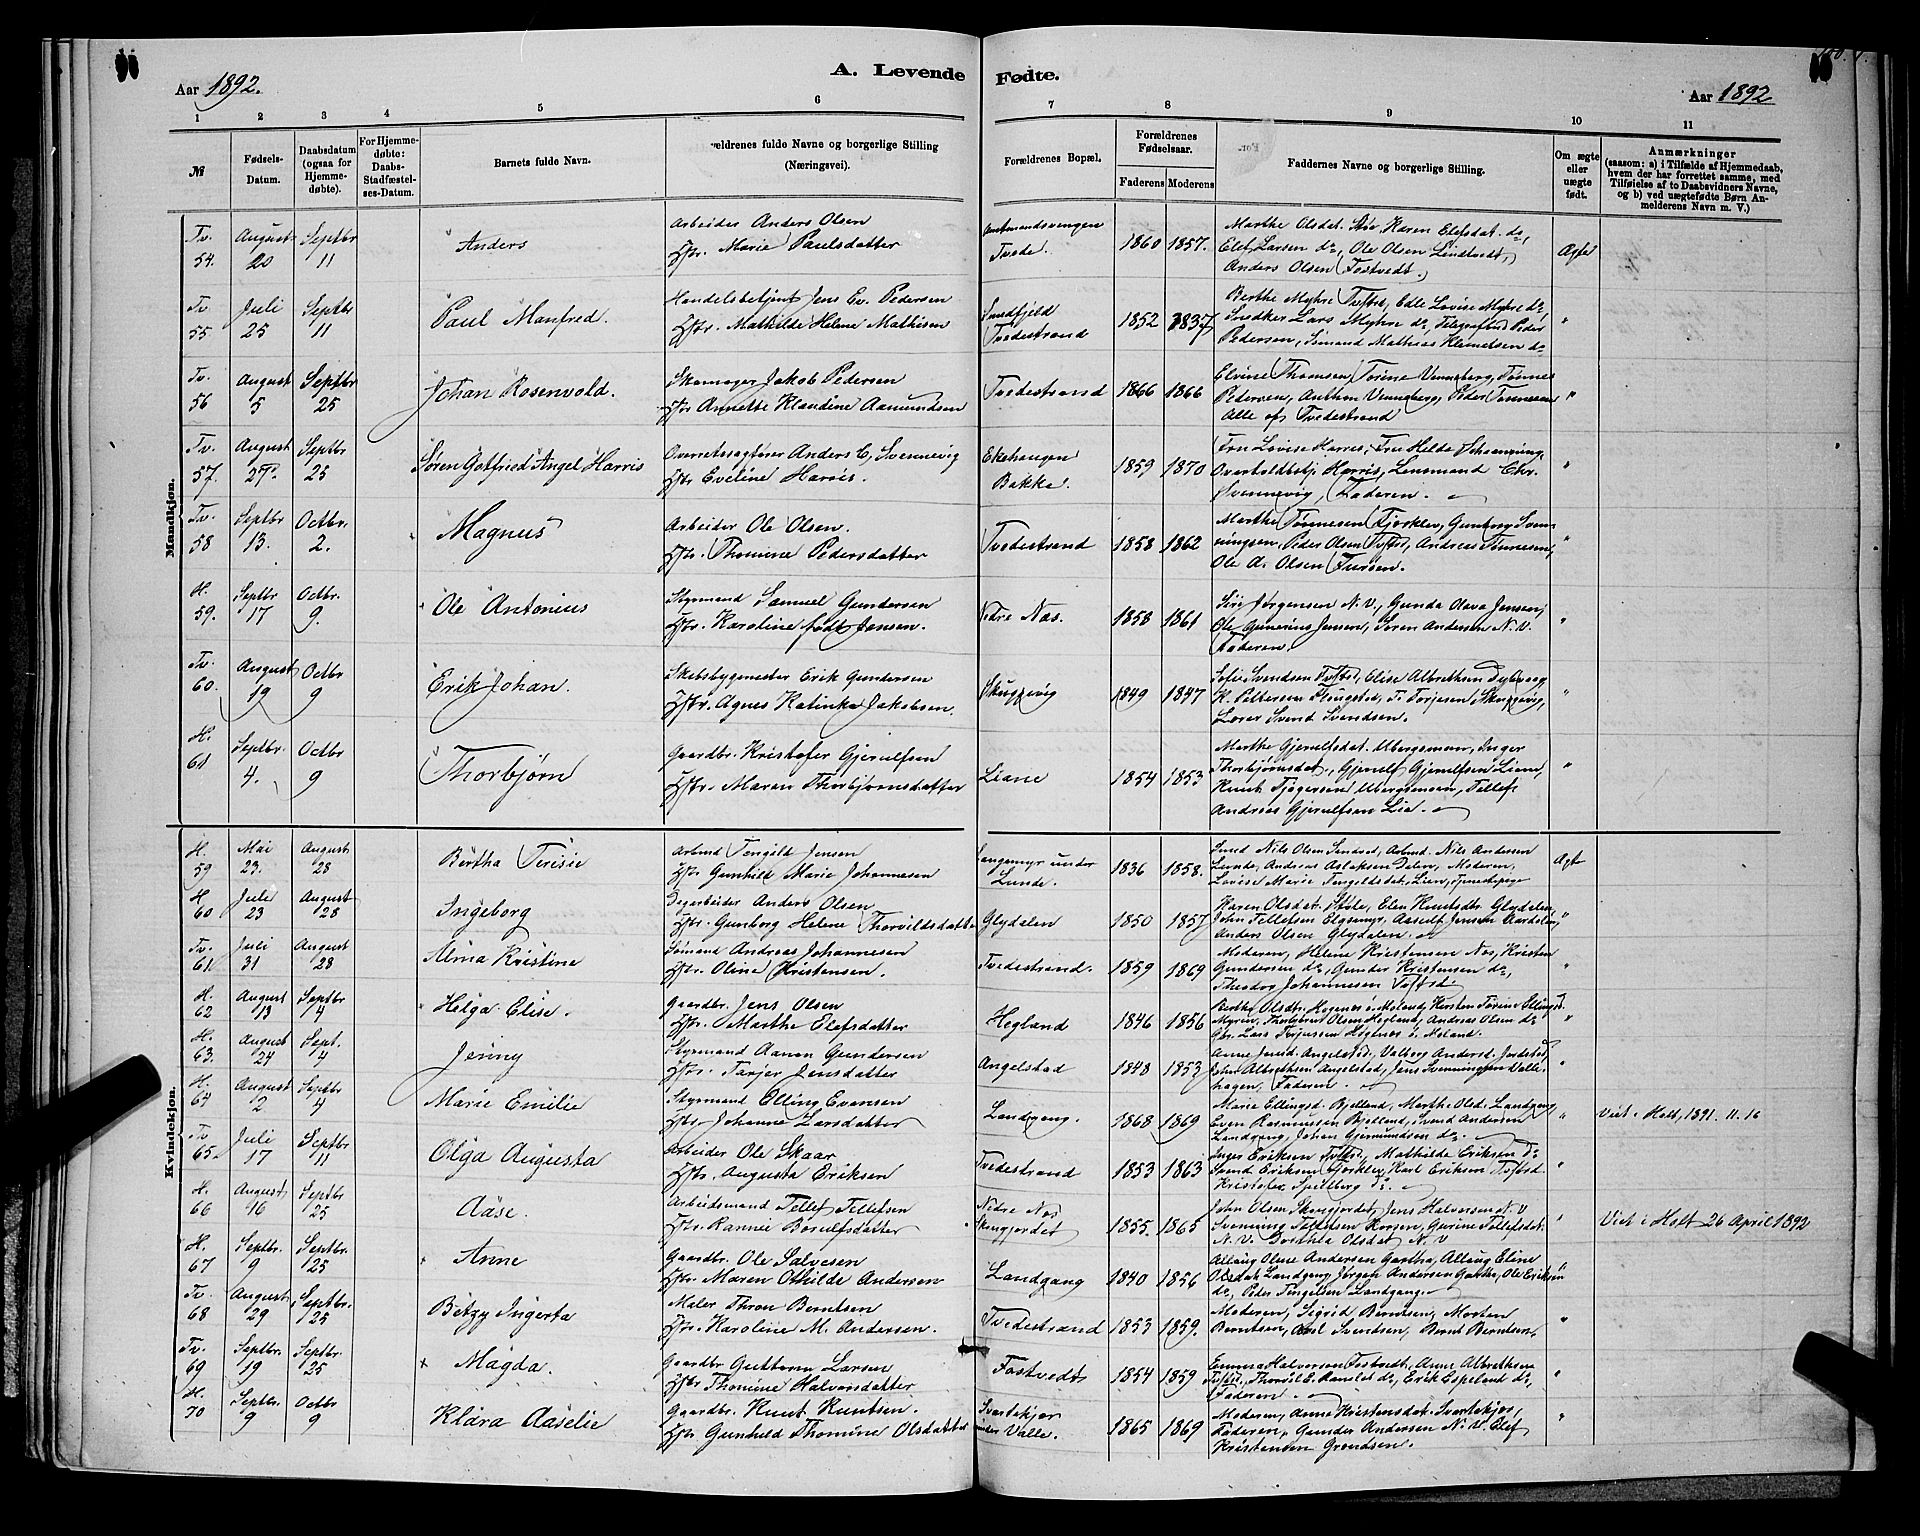 A. Levende Fødte.
Aar 1892.
Aar 1892
1 2 3 4 5 6 7 8 9 10 11
№
Fødsels-Datum.
Daabsdatum (ogsaa for Hjemmedøbte).
For Hjemmedøbte: Daabs-Stadfæstelses-Datum.
Barnets fulde Navn.
ældrenes fulde Navne og borgerlige Stilling (Næringsvei).
Forældrenes Bopæl.
Forældrenes Fødselsaar.
Faderens Moderens
Faddernes Navne og borgerlige Stilling.
Om ægte eller uægte født.
Anmærkninger (saasom: a) i Tilfælde af Hjemmedaab, hvem der har forrettet samme, med Tilføielse af to Daabsvidners Navne, og b) ved uægtefødte Børn Anmelderens Navn m. V.)
Mandkjøn.
Tv. 54. August 20 Septbr 11 Anders
Arbeider Anders Olsen
Hstr. Marie Paulsdatter
Tvede. 1860 1857.
Marthe Olsdat. Karen Elefsdat. do,
Elef Larsen do, Ole Olsen Lindtvedt,
Anders Olsen Fostvedt.
Ægte
Tv 55 Juli 25 Septbr 11 Paul Manfred.
Handelsbetjent Jens Ev. Pedersen
Hstr. Mathilde Helene Mathisen
Tvedestrand 1852
Berthe Myhre Tvstrd, Edle Lovise Myhre do,
Snedker Lars Myhre do, Peder
Pedersen, Sømand Mathias Klemetsen do
"
Tv. 56 August 5 Septbr 25 Johan Rosenvold.
Skomager Jakob Pedersen
Hstr Annette Klaudine Aamundsen
Tvedestrand 1866 1866
Elvine Thomsen, Torine Venneberg, Tønnes
Pedersen, Anthon Venneberg, Peder Tønnesen
Alle af Tvedestrand
"
Tv. 57. August Septbr 25 Søren Gotfried Angel Harris
Overretssagfører Anders C. Svennevig
Hstr Eveline Harris
Ekehaugen Bakke. 1859 1870
Fru Lovise Harris, Fru Helda
Harris, Lensmand Chr.
Svennevig, Faderen.
"
Tv. 58 Septbr 13. Octbr. 2. Magnus
Arbeider Ole Olsen.
Hstr. Thomine Pedersdatter
Tvedestrand 1858 1862
Marthe Tønnesen Fjorklev, Gunborg Svenningsen,
Peder Olsen Tvstrd, Andreas Tønnesen,
Ole A. Olsen Fursen.
"
H. 59. Septbr 17 Octbr. 9. Ole Antonius
Styrmand Samuel Gundersen
Hstr. Karoline født Jensen.
Nedre Nas. 1858 1861
Siri Jørgensen N. V., Gunda Olava Jensen,
Ole Gunerius Jensen, Søren Andersen N. V.
Faderen.
"
Tv. 60. August 19 Octbr 9 Erik Johan.
Skibsbygmester Erik Gundersen
Hstr. Agnes Katinka Jakobsen.
Skuggevig 1849 1847
Sofie Svendsen Tvstrd, Elise Albrethsen Dybvaag
K. Pettersen, T. Torjesen Skuggevig,
Svend Svendsen.
"
H. 61 Septbr. 4. Octbr 9 Thorbjørn
Gaardbr. Kristofer Gjerulfsen
Hstr. Maren Thorbjørnsdatter
Liane 1854 1853
Marthe Gjerulfsdat. Ubergsmoen, Inger
Thorbjørnsdat., Gjerulf Gjerulfsen Liene,
Knut Ubergsmoen, Tellef
Andreas Gjerulfsen Lia.
"
Kvindekjøn.
H. 59 Mai 23. August 28 Bertha Terisie
Arbmd Tengils Jensen
Hstr. Gunhild Marie Johannesen
Langemyr under Lunde. 1836 1858.
Smed Nils Olsen Sandved, Arbmd. Nils Andersen
Lunde, Andreas Aslaksen Dalen, Moderen,
Lovise Marie Tengilsdat. Lien, Tjenestepige
Ægte
H 60 Juli 23 August 28 Ingeborg
Anders Olsen
Hstr. Gunborg Helene Thorvildsdatter
Glydalen 1850 1857
Karen Olsdat. Støle, Elen Knutsdtr. Glydalen,
John Tellefsen Elgsmyr, Aasulf Jensen
Anders Olsen Glydalen.
"
Tv. 61 Juli 31 August 28 Alma Kristine
Sømand Andreas Johannesen
Hstr. Oline Kristensen.
Tvedestrand. 1859 1869
Moderen, Helene Kristensen Nas, Kristen
Gundersen do, Gunder Kristensen do,
Theodor Johannesen Tvstd.
"
H. 62 August 13 Septbr 4 Helga Elise.
Gaardbr. Jens Olsen
Hstr. Marthe Elefsdatter
Hegland 1846 1856
Berthe Olsdtr. Høgenes i Moland, Kirsten Torine Ellingsd.
Myren, Olsen Hegland, Andreas Olsen do
Gbr. Lars Terjussen Høgenes i Moland.
"
H. 63. August 24 Sept. 4 Jenny
Styrmand Aanon Gundersen
Hstr. Tarjer Jensdatter
Angelstad 1848 1853
Anne Jensd. Angelstad, Valborg Andersd.
John Albrethsen Angelstad, Jens Svenningsen Vallehagen,
Faderen.
"
H. 64 August 2 Septbr 4 Marie Emilie
Styrmand Elling Evensen
Hstr. Johanne Larsdatter
Landgang. 1868 1869
Marie Ellingsd. Bjelland, Marthe Olsd. Landgang,
Even Rasmussen Bjelland, Svend Andersen
Landgang, Johan Gjermundsen do.
"
Viet i Holt, 1891. 11. 16
Tv 65. Juli 17 Septbr 11 Olga Augusta
Arbeider Ole Skaar
Hstr. Augusta Eriksen
Tvedestrand 1853 1863
Inger Eriksen Tvstd, Mathilde Eriksen do
Svend Eriksen Fjorklev, Karl Eriksen Tvstrd.
Kristofer Spelberg do.
"
H. 66 August 16 Septbr 25 Aase.
Arbeidsmand Tellef Tellefsen
Hstr. Rannei Bosulfsdatter
Nedre Nas Skougjordet 1855. 1865
John Olsen Skougjordet, Jens Halvorsen N. V
Svenning Tellefsen, Gurine Tellefsdat.
N. V. Dorthea Olsdat. N. V
"
Viet i Holt 26 April 1892
H. 67 Septbr. 9 Septbr. 25 Anne
Gaardbr. Ole Salvesen
Hstr. Maren Othilde Andersen
Landgang 1840 1856
Allaug Oline Andersen Gartha, Allaug Eline
Olsdat. Landgang, Jørgen Andersen Gartha, Ole Eriksen
do, Peder Tengelsen Landgang.
"
Tv. 68 August 29 Septbr. 25 Betzy Ingerta
Maler Thron Berntsen
Hstr. Karoline M. Andersen.
Tvedestrand 1853 1859.
Moderen, Sigrid Berntsen, Morten
Berntsen, Axel Svendsen, Bernt Berntsen.
"
Tv. 69 Septbr. 19 Septbr. 25 Magda.
Gaardbr Guttorm Larsen
Hstr Thomine Halvorsdatter
Fostvedt 1854 1859
Emma Halvorsen Fostvedt, Anne Albrethsen
Tvstd, Thorvol E. Ramslet do, Erik Espeland do,
Faderen.
"
H. 70 Septbr. 9 Octbr 9 Klara Aaselie
Gaardbr. Knut Knutsen.
Hstr Gunhild Thomine Olsdatter
Svartekjær under Valle. 1865 1869
Moderen, Anne Kristensdat. Svartekjær,
Faderen, Gunder Andersen N. V. Elef
Kristensen Grendsen.
"